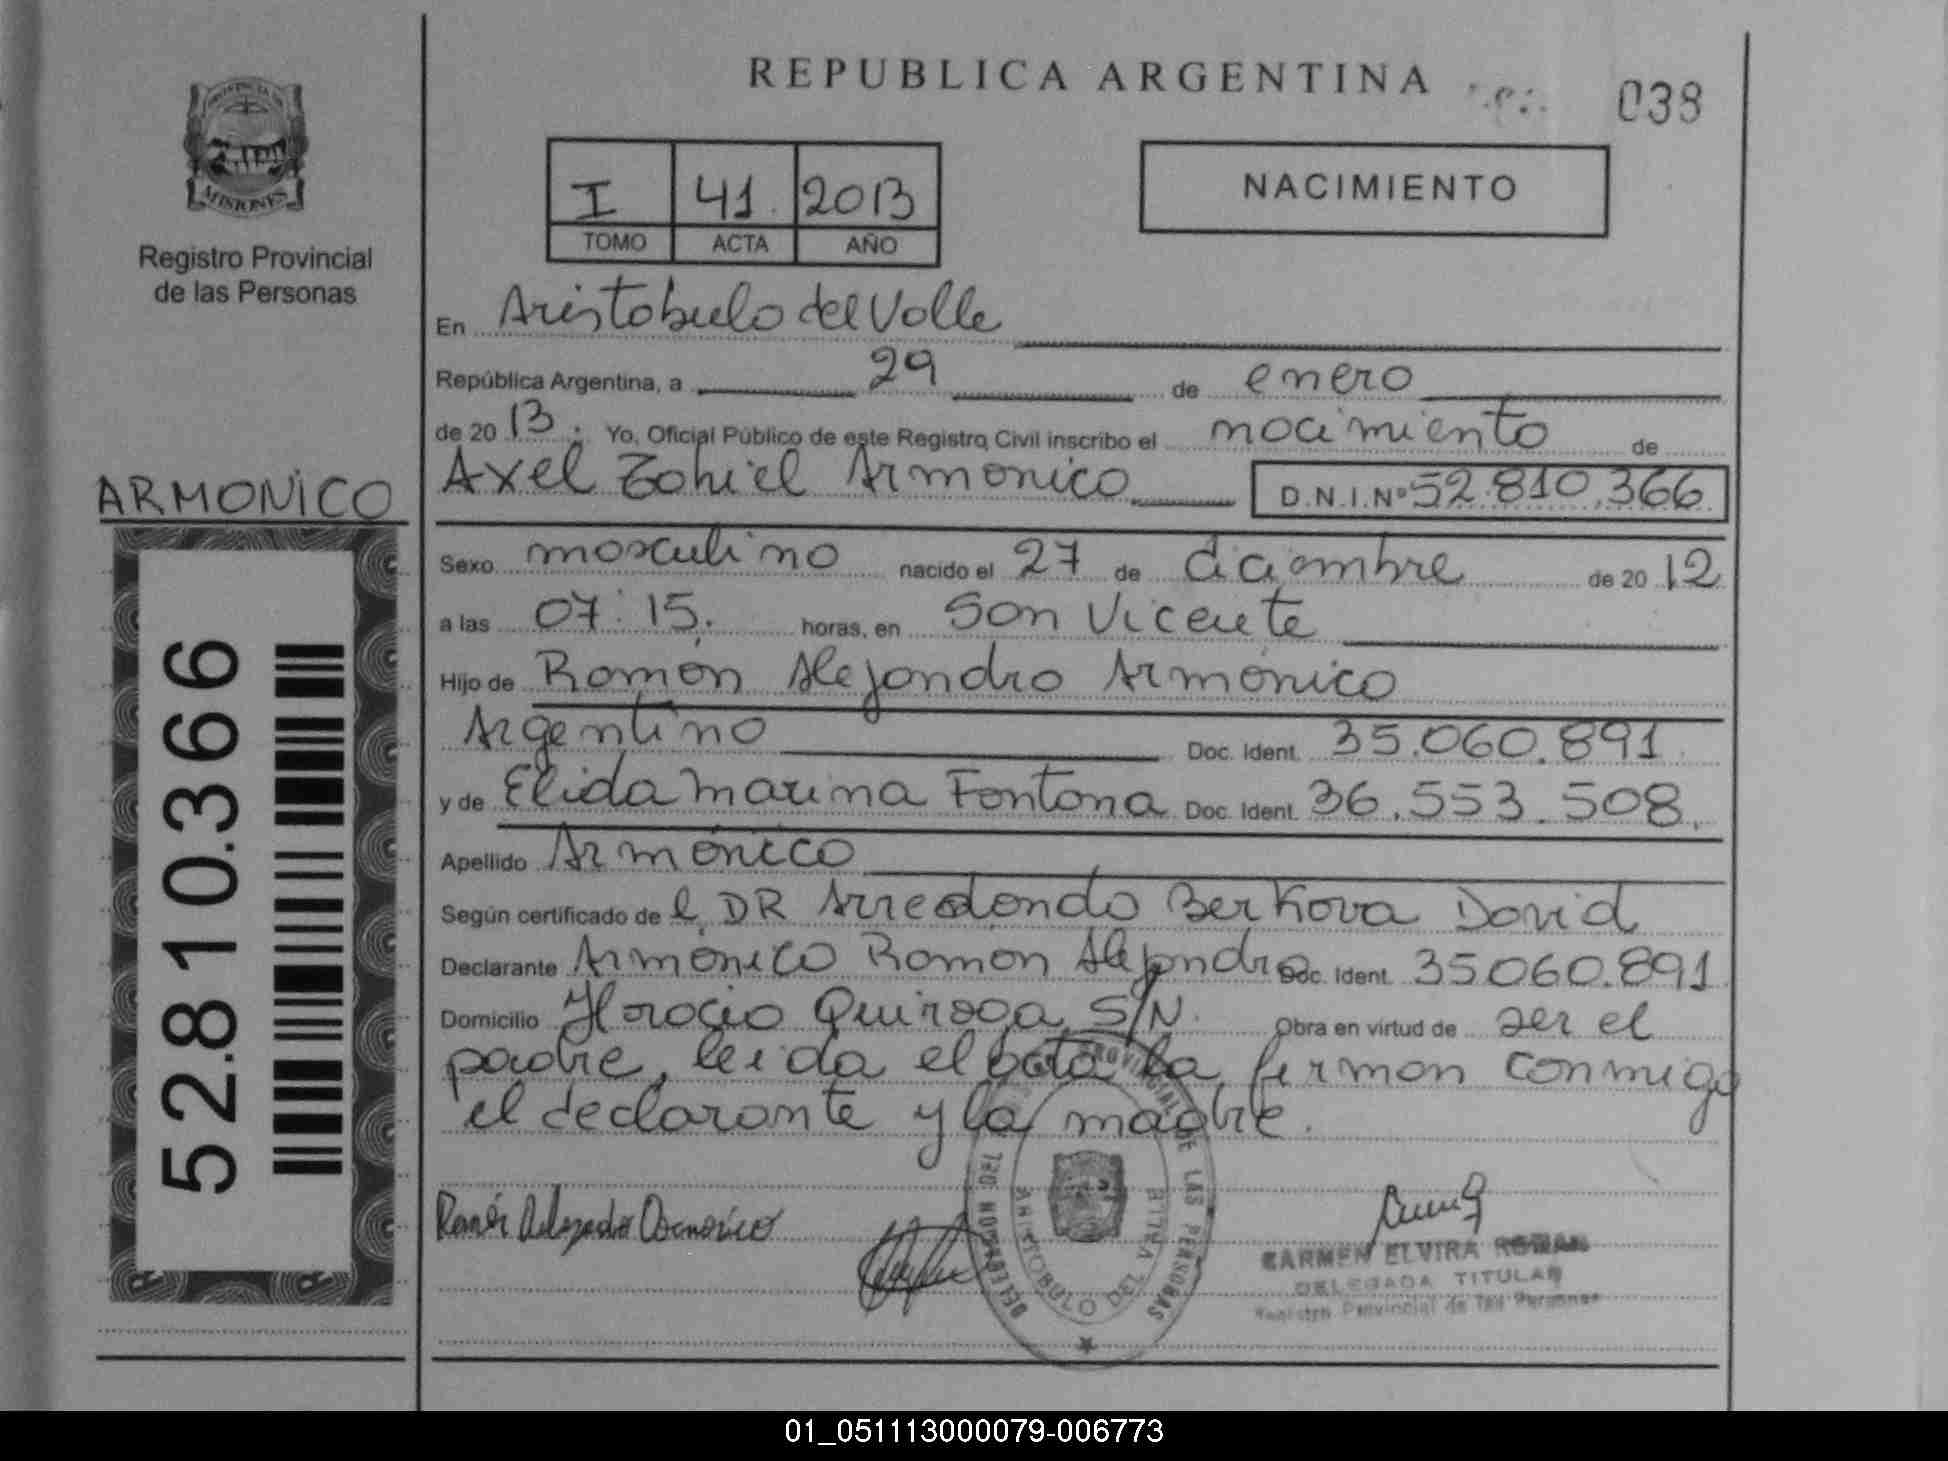 REPUBLICA ARGENTINA
038
PROVINCIA DE
MISIONES
Registro Provincial
de las Personas
I 41. 2013
TOMO ACTA AÑO
NACIMIENTO
En Aristobulo del Valle
República Argentina, a 29 de enero
de 2013. Yo, Oficial Público de este Registro Civil inscribo el nacimiento de
ARMONICO
Axel Armonico D.N.I.Nº 52.810.366
Sexo masculino nacido el 27 de diciembre de 2012
a las 07:15. horas, en San Vicente
Hijo de Ramón Alejandro Armónico
Argentino Doc. Ident. 35.060.891
y de Elida Marina Fontana Doc. Ident. 36.553.508.
Apellido Armónico
Según certificado de el DR Arredondo Berkova David
Declarante Armónico Ramon Alejandro Doc. Ident. 35060.891
Domicilio Horacio Quiroga S/N. Obra en virtud de ser el
padre, leida el acta la firman conmigo
el declarante y la madre.
52.810.366
Ramón Alejandro Armonico
REGISTRO PROVINCIAL DE LAS PERSONAS
DELEGACION DEL
ARISTOBULO DEL VALLE
CARMEN ELVIRA ROMAN
DELEGADA TITULAR
Registro Provincial de las Personas
01_051113000079-006773